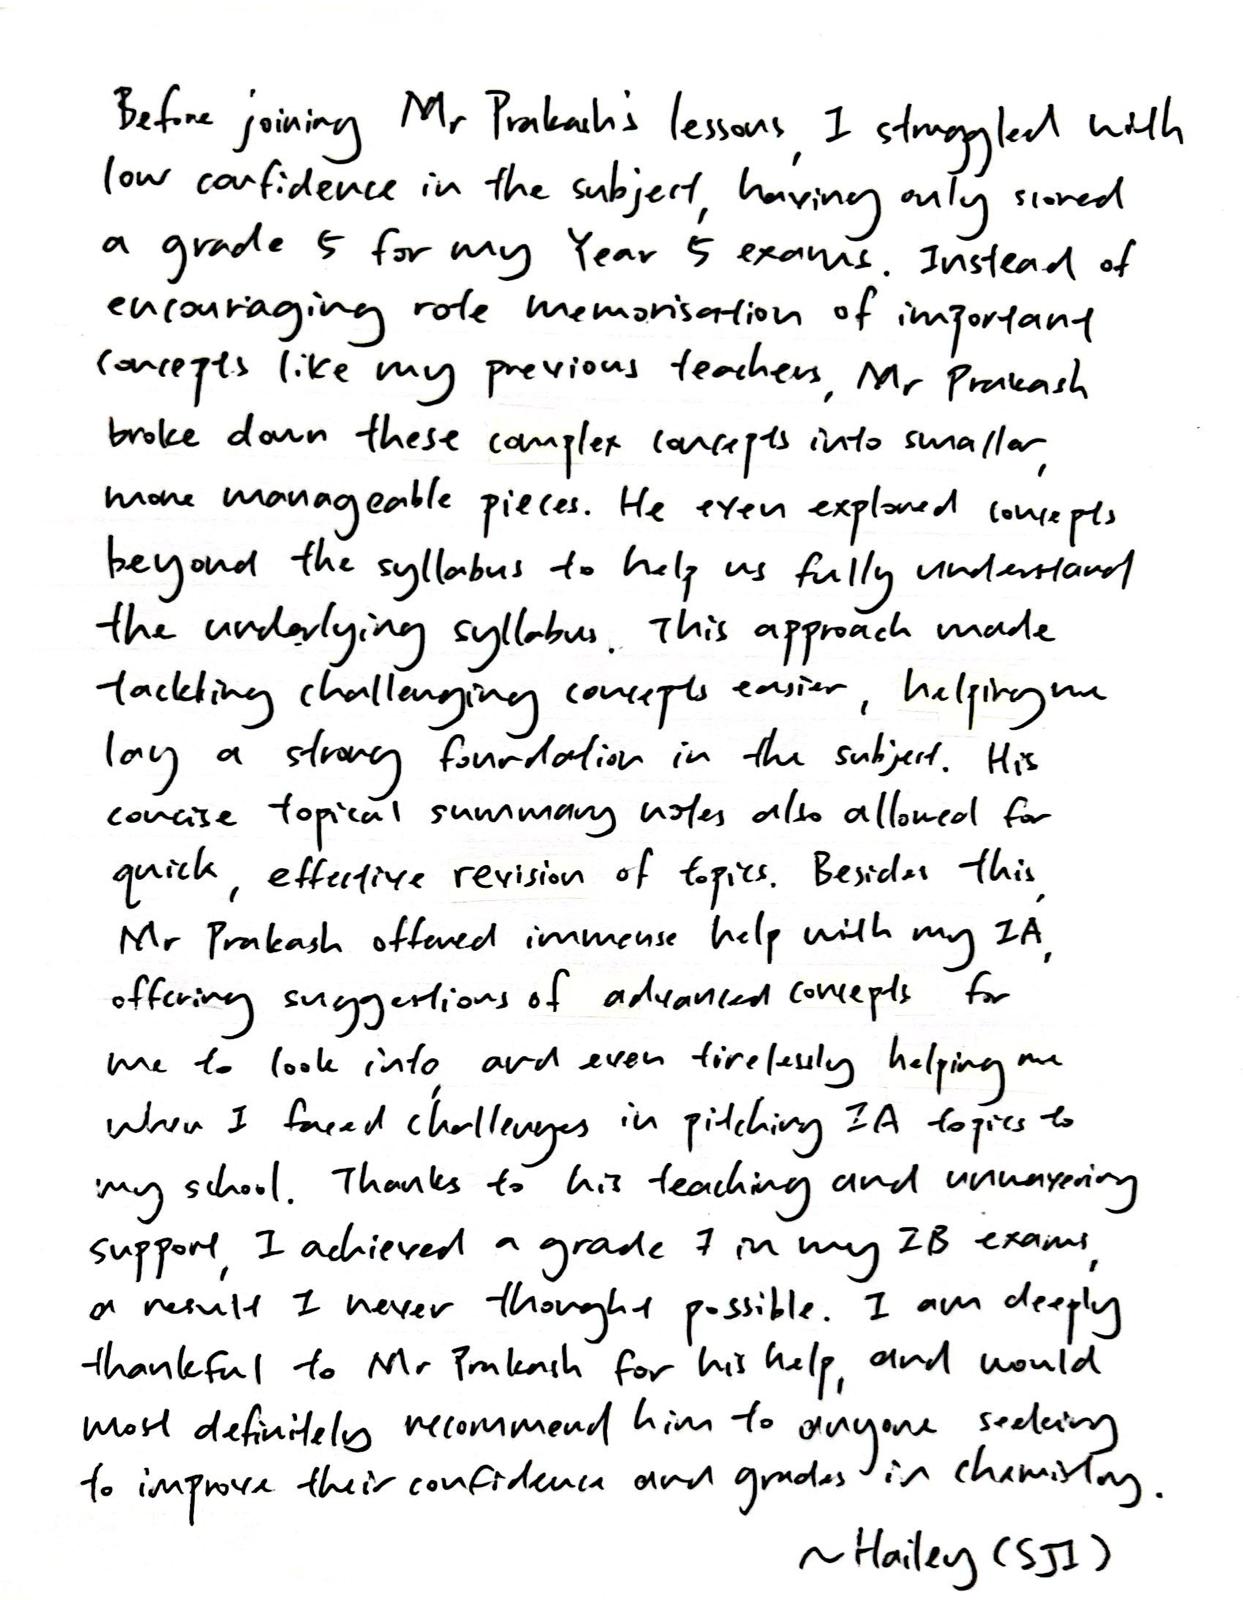 Before joining Mr Prakash's lessons, I struggled with
low confidence in the subject, having only scored
a grade 5 for my Year 5 exams. Instead of
encouraging rote memorisation of important
concepts like my previous teachers, Mr Prakash
broke down these complex concepts into smaller,
more manageable pieces. He even explored concepts
beyond the syllabus to help us fully understand
the underlying syllabus. This approach made
tackling challenging concepts easier, helping me
lay a strong foundation in the subject. His
concise topical summary notes also allowed for
quick, effective revision of topics. Besides this,
Mr Prakash offered immense help with my IA,
offering suggestions of advanced concepts for
me to look into, and even tirelessly helping me
when I faced challenges in pitching IA topics to
my school. Thanks to his teaching and unwavering
support, I achieved a grade 7 in my IB exams,
a result I never thought possible. I am deeply
thankful to Mr Prakash for his help, and would
most definitely recommend him to anyone seeking
to improve their confidence and grades in chemistry.
~Hailey (SJI)